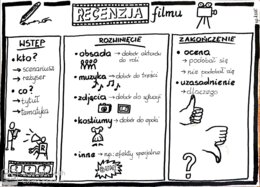 RECENZJA filmu
WSTĘP
• kto?
→ scenariusz
→ reżyser
• co?
→ tytuł
→ tematyka
ROZWINIĘCIE
• obsada → dobór aktorów
do roli
• muzyka → dobór do treści
• zdjęcia → dobór do sytuacji
• kostiumy → dobór do epoki
• inne → np. efekty specjalne
ZAKOŃCZENIE
• ocena
→ podobał się
→ nie podobał się
• uzasadnienie
→ dlaczego
?